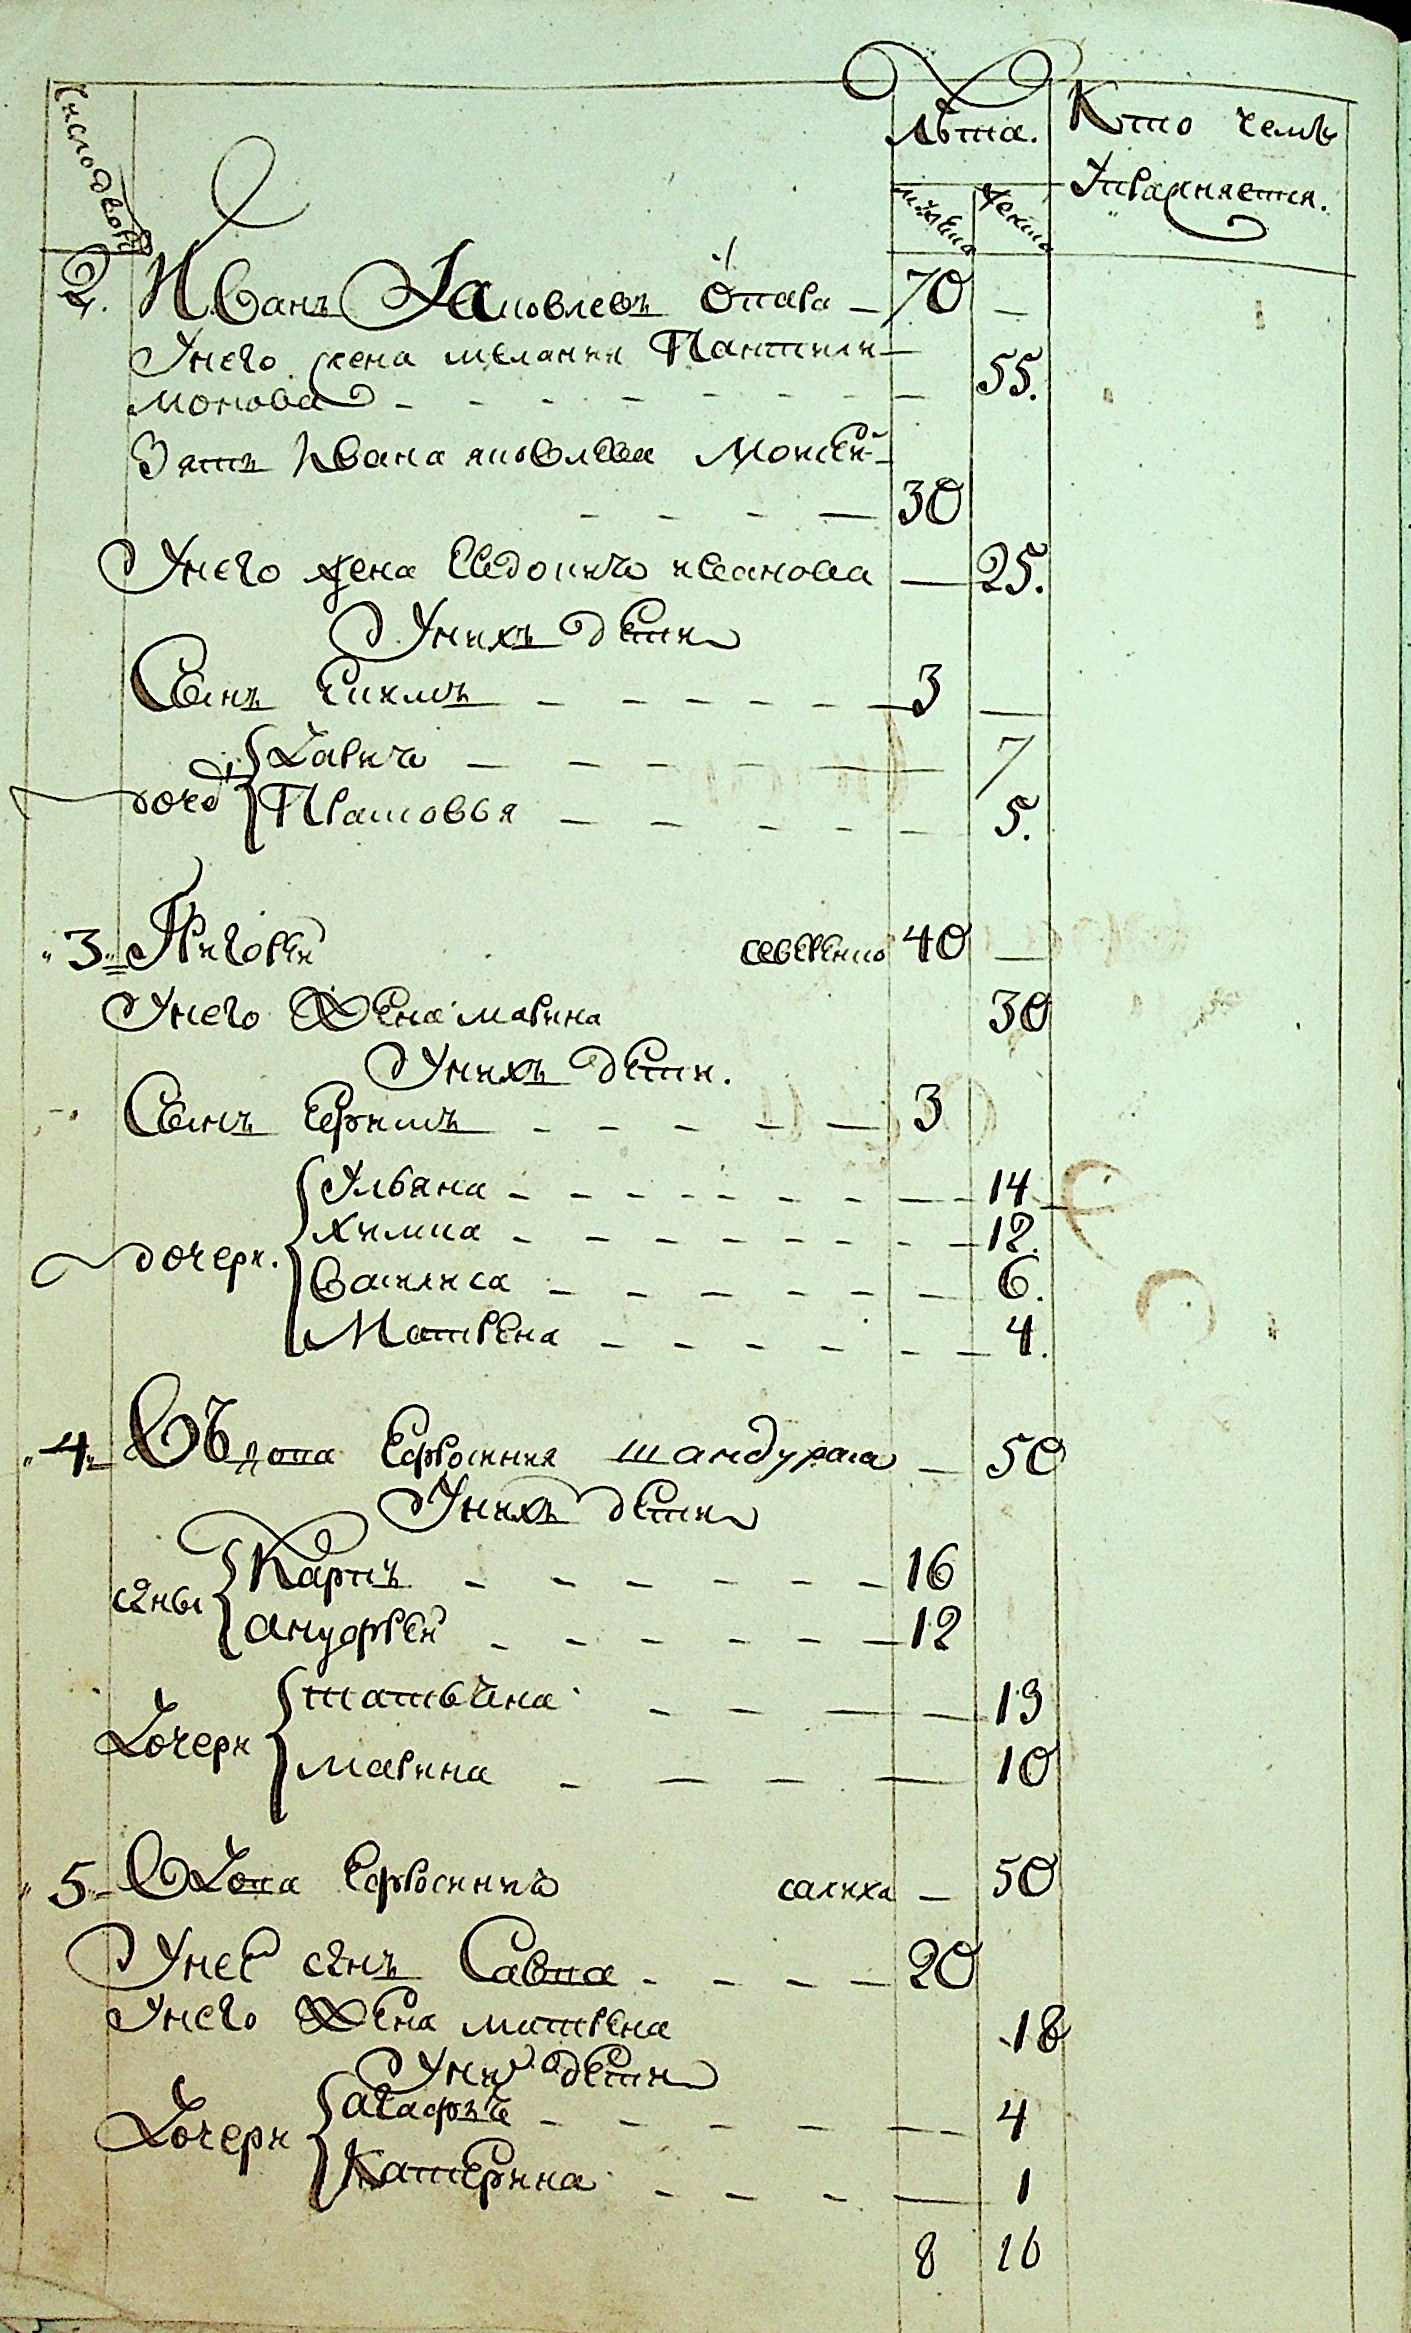 Число дворъ
Лѣта. Кто чемъ
Упражняется.
мужеска женска
2. Иванъ Яковлевъ Опара – 70 –
Унего жена мелания Пантили–
монова – – – – – – – 55.
Зять Ивана яковлева Моисей –
– – – — 30
Унего жена Евдокия иванова — 25.
Унихъ дети
Сынъ Еким – – – – – – 3 —
дочери
Дария – – – – – – 7
Прасковья – – – – – 5.
"3" Григорей северенко 40 —
Унего Жена марина 30
Унихъ дети.
Сынъ Ефимъ – – – – — 3
дочери.
Ульяна – – – – – – – – – 14
химка – – – – – – – – – 12.
Василиса – – – – – – 6.
Матрена – – – – – – – 4.
"4" Въдова Ефросиния шандурака – 50
Унихъ дети
сыны
Карпъ – – – – – – 16
андрей – – – – – — 12
Дочери
татьяна – – — — 13
марина – — – — 10
"5" Вдова Ефросиния салиха – 50
Унеё сынъ Савка – – – — 20
Унего Жена матрена 18
Уних дети
Дочери
агафия – – – – – – 4
Катерина – – – — 1
8 16